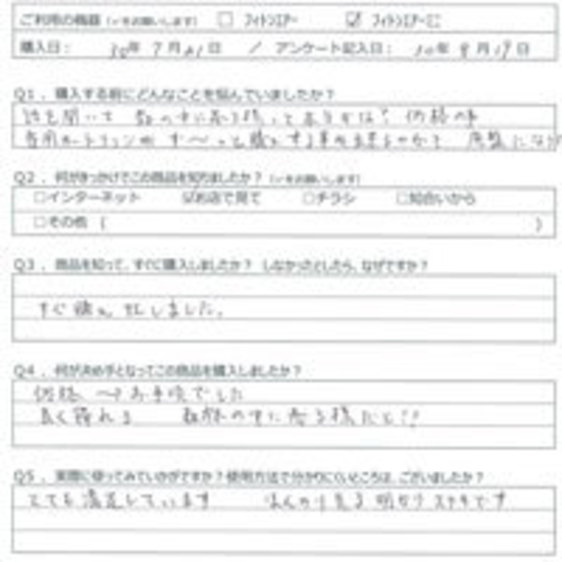 ご利用の機器（✓をお願いします） □ フィトンエアー ☑ フィトンエアーミニ
購入日： 30年 7月21日 ／ アンケート記入日： 30年 8月19日
Q1．購入する前にどんなことを悩んでいましたか？
話を聞いて 森の中に居る様って本当かな？ 価格の事
専用カートリッジが ず〜っと購入する事が出来るのか？
Q2．何がきっかけでこの商品を知りましたか？（✓をお願いします）
□インターネット ☑お店で見て □チラシ □知合いから
□その他（ ）
Q3．商品を知って、すぐに購入しましたか？ しなかったとしたら、なぜですか？
すぐ購入 致しました。
Q4．何が決め手となってこの商品を購入しましたか？
価格 → お手頃でした
良く 森林の中に居る様だと!!
Q5．実際に使ってみていかがですか？使用方法で分かりにくいところは、ございましたか？
とても満足しています ほんのり光る 明かり ステキです